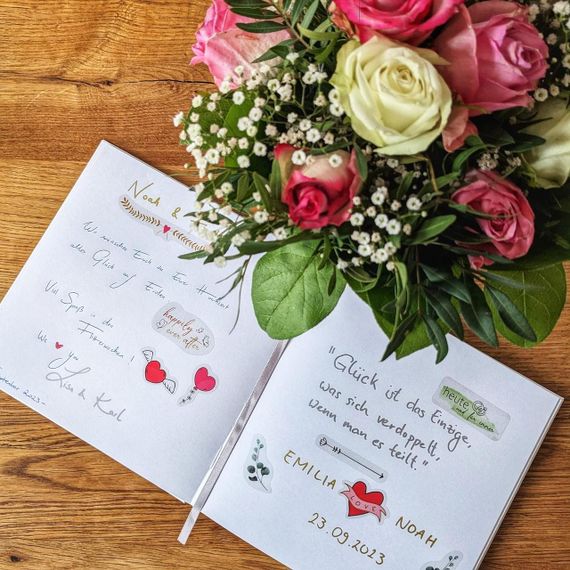 Noah &
Wir wünschen Euch zu Eurer Hochzeit
alles Glück auf Erden
Viel Spaß in den
Flitterwochen!
We ♥ you
Lisa & Karl
2023
happily
ever after
"Glück ist das Einzige,
was sich verdoppelt,
wenn man es teilt."
heute
und für immer
EMILIA
LOVE
NOAH
23.09.2023